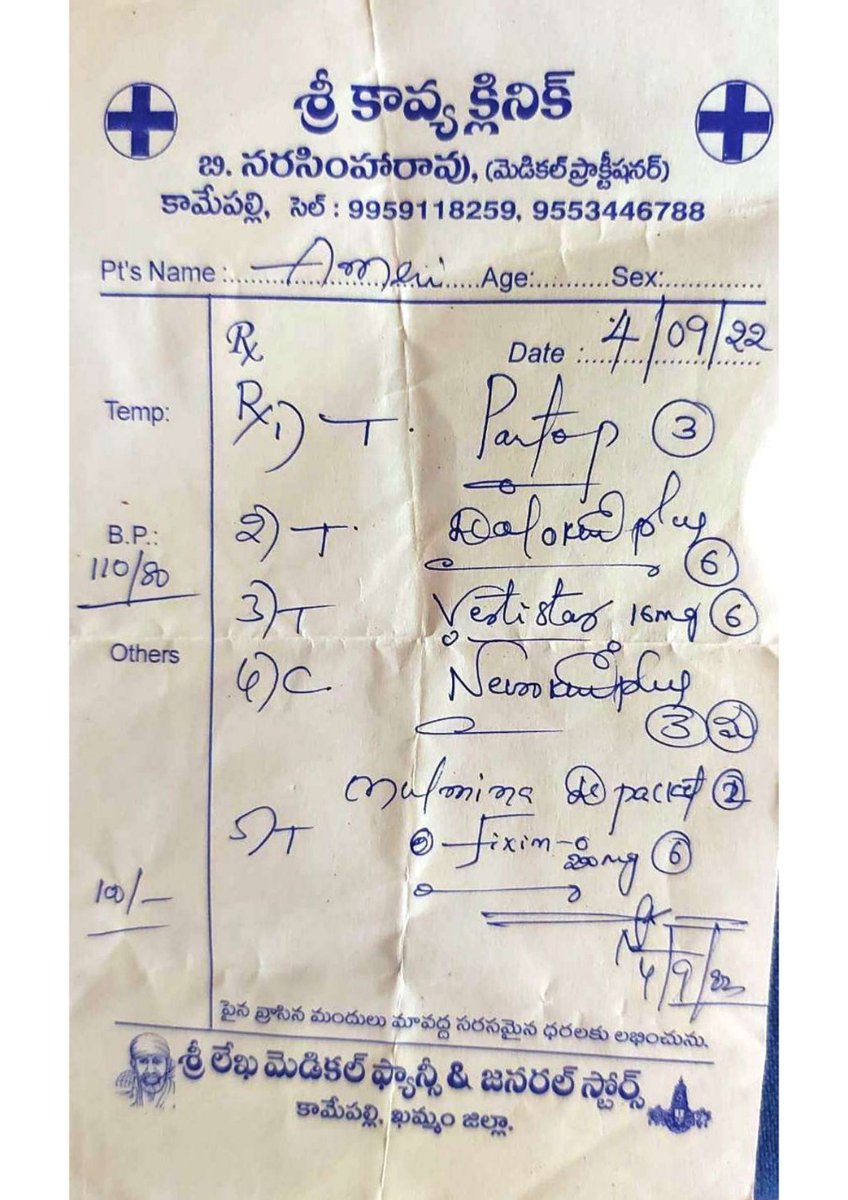 శ్రీ కావ్య క్లినిక్
బి. నరసింహారావు, (మెడికల్ ప్రాక్టీషనర్)
కామేపల్లి, సెల్ : 9959118259, 9553446788
Pt's Name : Age: Sex:
Rx
Date : 4/09/22
Temp:
Rx 1) T. Pantop 3
B.P.:
110/80
2) T. plus
6
3) T Vertistar 16mg 6
Others
4) C. plus
3
packet 2
5) T Fixim-o
200mg 6
100/-
పైన వ్రాసిన మందులు మావద్ద సరసమైన ధరలకు లభించును.
శ్రీ లేఖ మెడికల్ ఫ్యాన్సీ & జనరల్ స్టోర్స్
కామేపల్లి, ఖమ్మం జిల్లా.